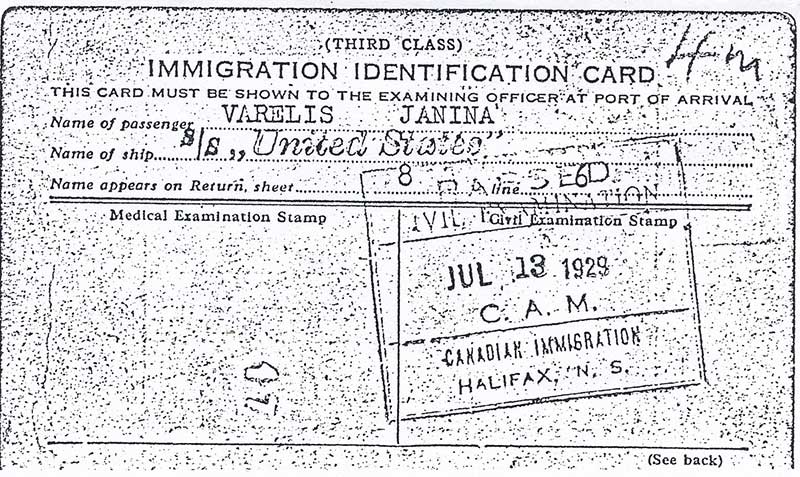 (THIRD CLASS)
IMMIGRATION IDENTIFICATION CARD
THIS CARD MUST BE SHOWN TO THE EXAMINING OFFICER AT PORT OF ARRIVAL
Name of passenger VARELIS JANINA
Name of ship S/S „United States"
Name appears on Return, sheet 8 line 6
PASSED
Medical Examination Stamp
Civil Examination Stamp
CIVIL EXAMINATION
JUL 13 1929
C. A. M.
CANADIAN IMMIGRATION
HALIFAX, N. S.
(See back)